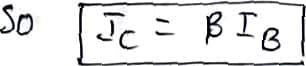 So I_C = β I_B